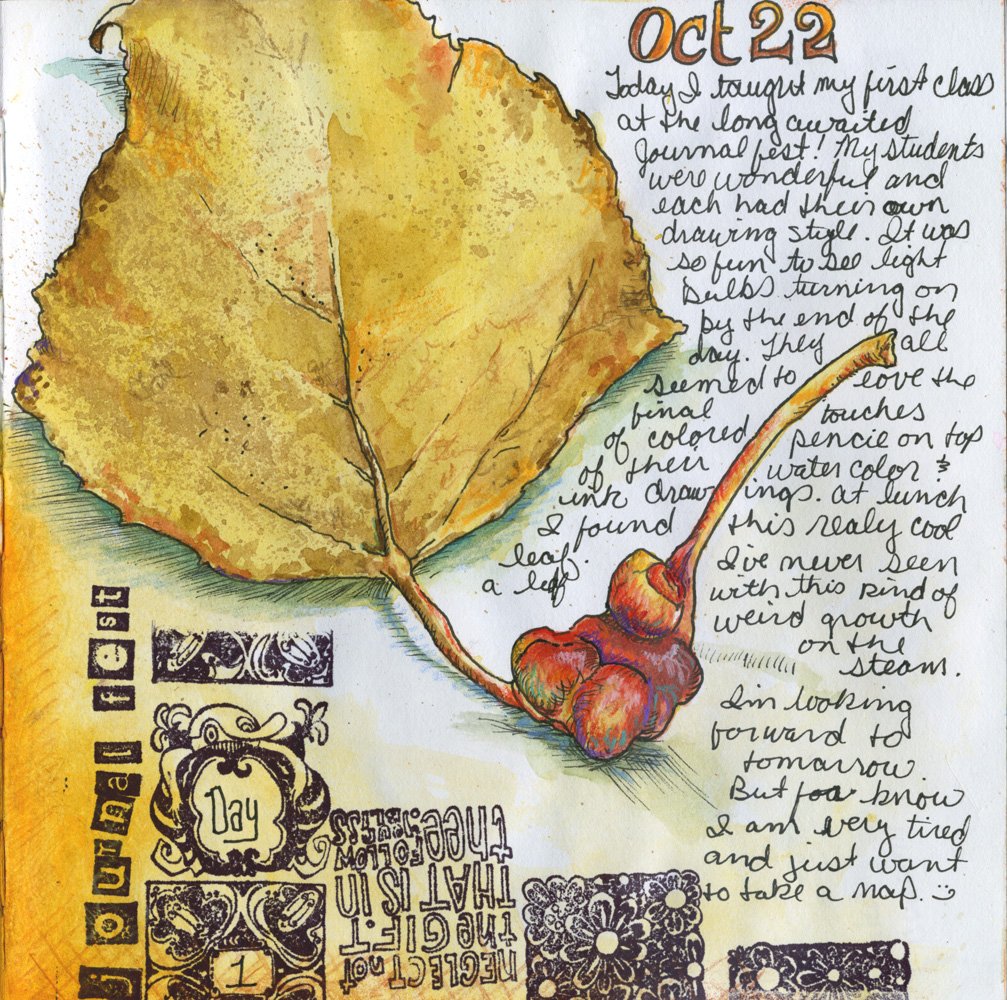 Oct 22
Today I taught my first class
at the long awaited
Journal fest! My students
were wonderful and
each had their own
drawing style. It was
so fun to see light
bulbs turning on
by the end of the
day. They all
seemed to love the
final touches
of colored pencil on top
of their water color &
ink drawings. at lunch
I found this realy cool
leaf. I've never seen
a leaf with this kind of
weird growth
on the
steam.
I'm looking
forward to
tomarrow.
But for know
I am very tired
and just want
to take a nap. :)
journal fest
Day
1
NEGLECT not
the GIFT
THAT IS IN
thee.
FOLLOW
BLISS